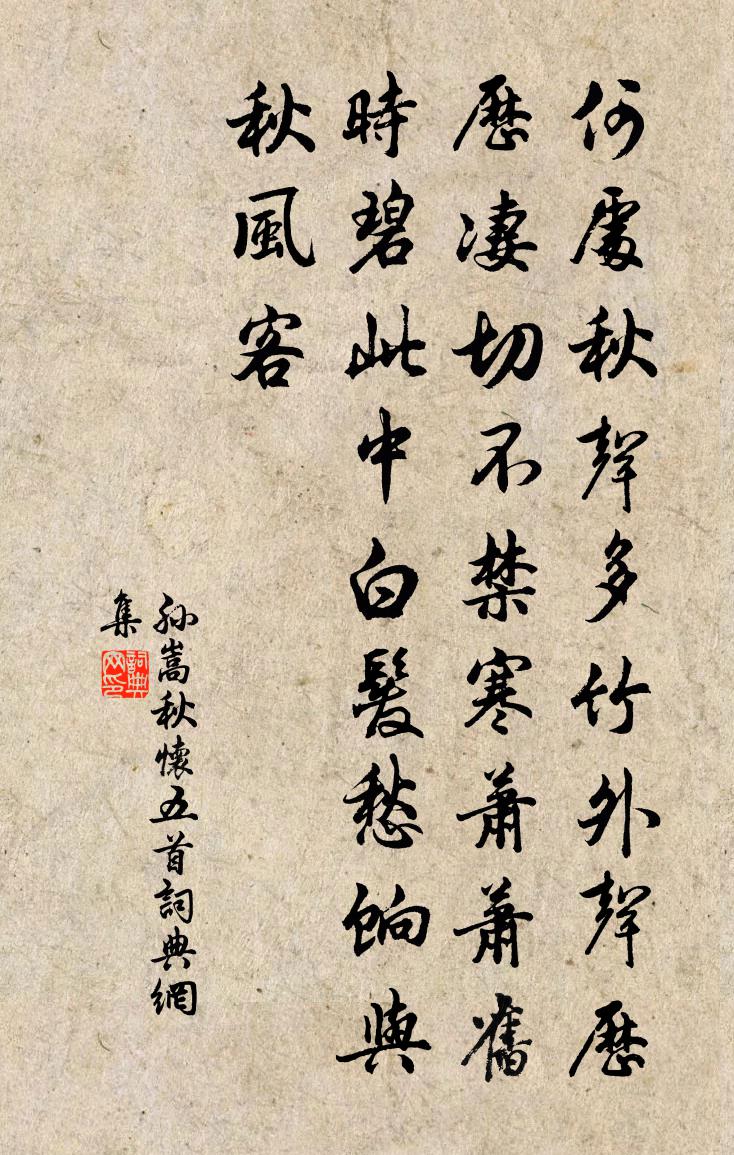 何處秋聲多竹外聲歷
歷凄切不禁寒蕭蕭舊
時碧此中白髮愁餉與
秋風客
孫嵩秋懷五首詞典網
集
詞典
网印